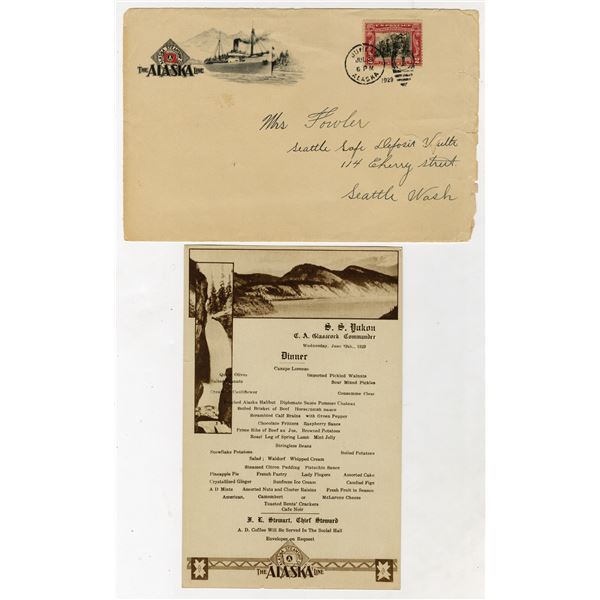 THE ALASKA LINE
JUNEAU
JUL
6 PM
1929
ALASKA
Mrs Fowler
Seattle Safe Deposit Vaults
114 Cherry street
Seattle Wash
S. S. Yukon
C. A. Glasscock Commander
Wednesday, June 19th., 1929
Dinner
Canape Lorenzo
Queen Olives Imported Pickled Walnuts
Salted Peanuts Sour Mixed Pickles
Cream of Cauliflower Consomme Clear
Poached Alaska Halibut Diplomate Sauce Pommes Chateau
Boiled Brisket of Beef Horseradish Sauce
Scrambled Calf Brains with Green Pepper
Chocolate Fritters Raspberry Sauce
Prime Ribs of Beef au Jus, Browned Potatoes
Roast Leg of Spring Lamb Mint Jelly
Stringless Beans
Snowflake Potatoes Boiled Potatoes
Salad; Waldorf Whipped Cream
Steamed Citron Pudding Pistachio Sauce
Pineapple Pie French Pastry Lady Fingers Assorted Cake
Crystallized Ginger Sunfreze Ice Cream Candied Figs
A D Mints Assorted Nuts and Cluster Raisins Fresh Fruit in Season
American, Camembert or McLarens Cheese
Toasted Bents' Crackers
Cafe Noir
F. L. Stewart, Chief Steward
A. D. Coffee Will Be Served In The Social Hall
Envelopes on Request
THE ALASKA LINE